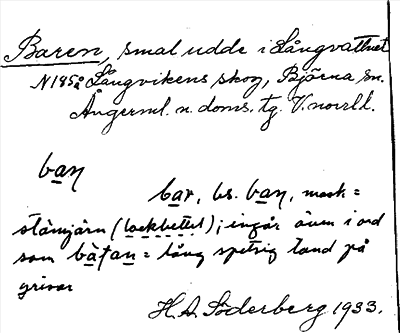 Baren, smal udde i Långvattnet
N185å Långvikens skog, Björna sn.
Ångerml. n. doms. tg. V. norrl l.
baŋ
bar, bs. baŋ, mask =
stämjärn (); ingår även i ord
som = lång spetsig tand på
grisar
H. A. Söderberg 1933.